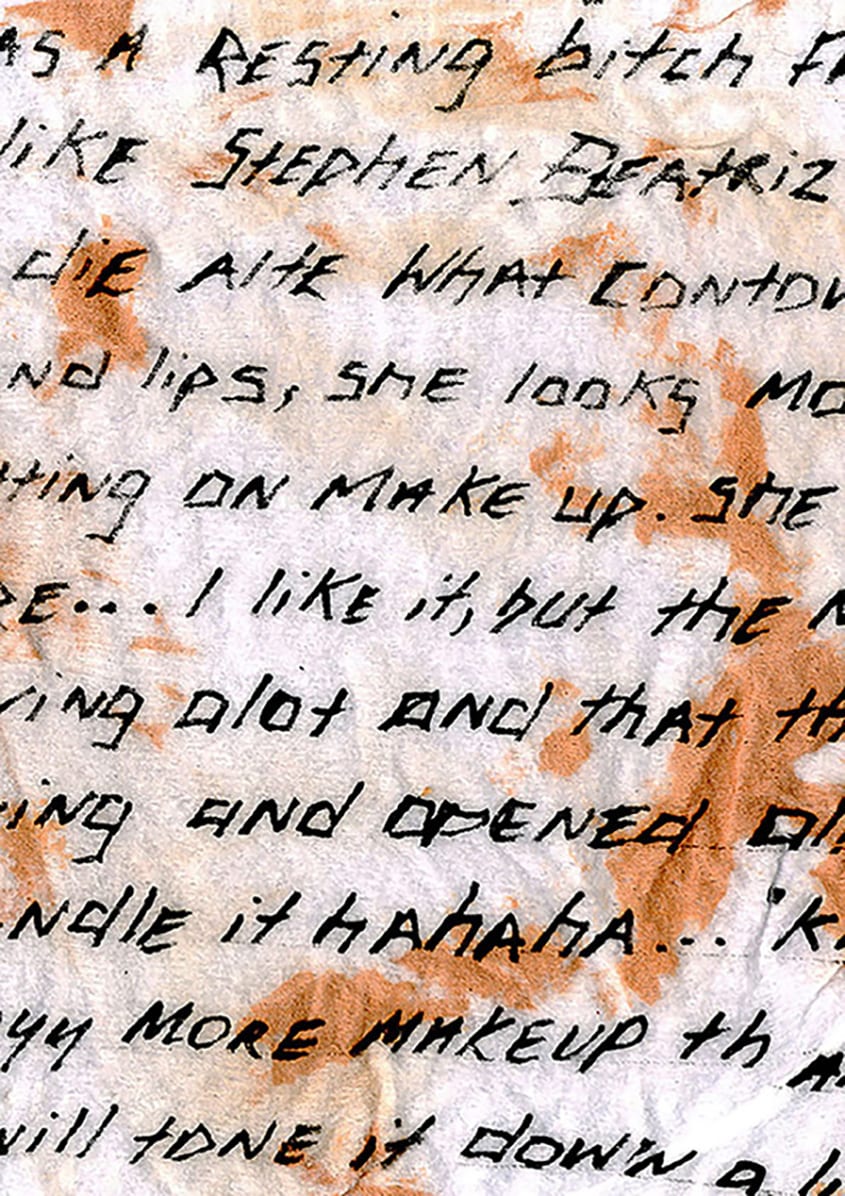 AS A RESting bitch FA
like StEphEN BEAtRiz
diE AltE WhAt CONtOu
Nd lips, ShE lOOKs MO
tting ON MAKE up. ShE
RE... I liKE it, but thE
ying alot and that th
ing and OPENEd al
NdlE it hAhAhA... 'K
yy MORE MAKEUP th A
will tONE it dOwN a li